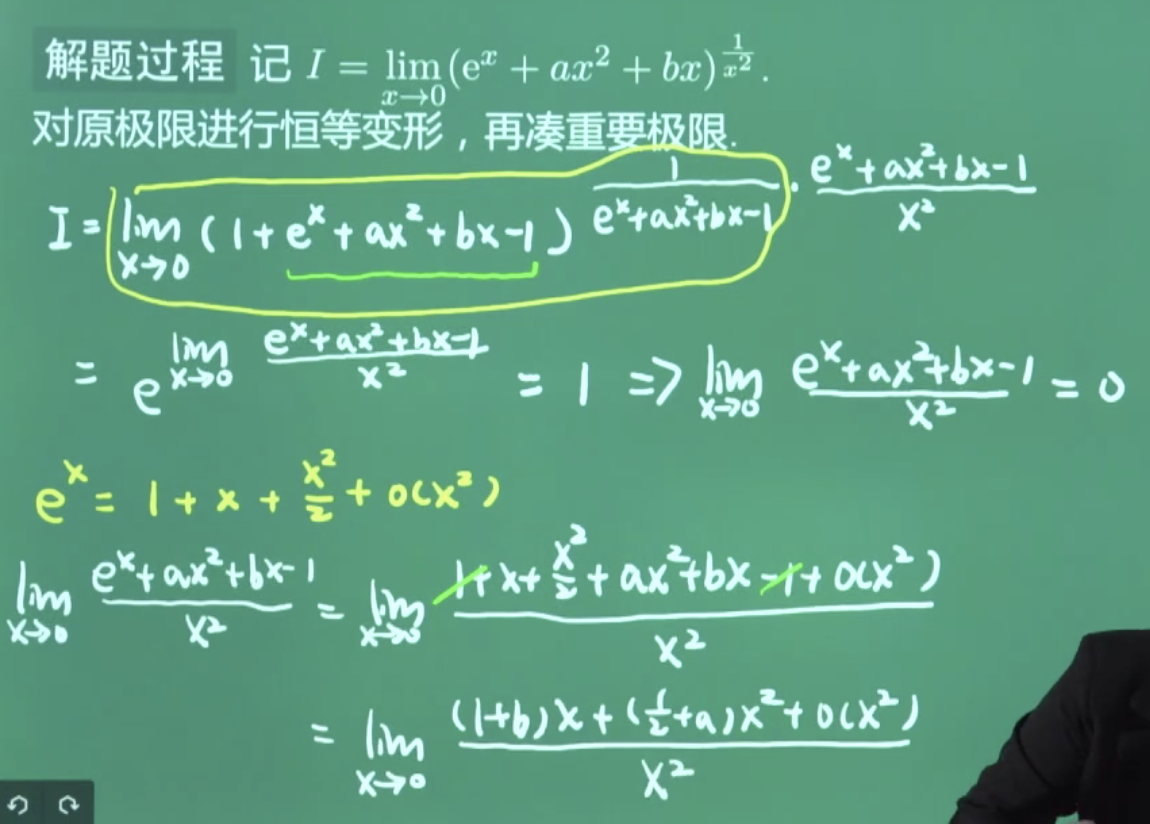 解题过程 记 I = lim_{x→0} (e^x + ax^2 + bx)^{1/x^2}.
对原极限进行恒等变形，再凑重要极限.
I = lim_{x→0} (1 + e^x + ax^2 + bx - 1)^{1/(e^x + ax^2 + bx - 1) · (e^x + ax^2 + bx - 1)/x^2}
= e^{lim_{x→0} (e^x + ax^2 + bx - 1)/x^2} = 1 ⇒ lim_{x→0} (e^x + ax^2 + bx - 1)/x^2 = 0
e^x = 1 + x + x^2/2 + o(x^2)
lim_{x→0} (e^x + ax^2 + bx - 1)/x^2 = lim_{x→0} (1 + x + x^2/2 + ax^2 + bx - 1 + o(x^2))/x^2
= lim_{x→0} ((1+b)x + (1/2 + a)x^2 + o(x^2))/x^2